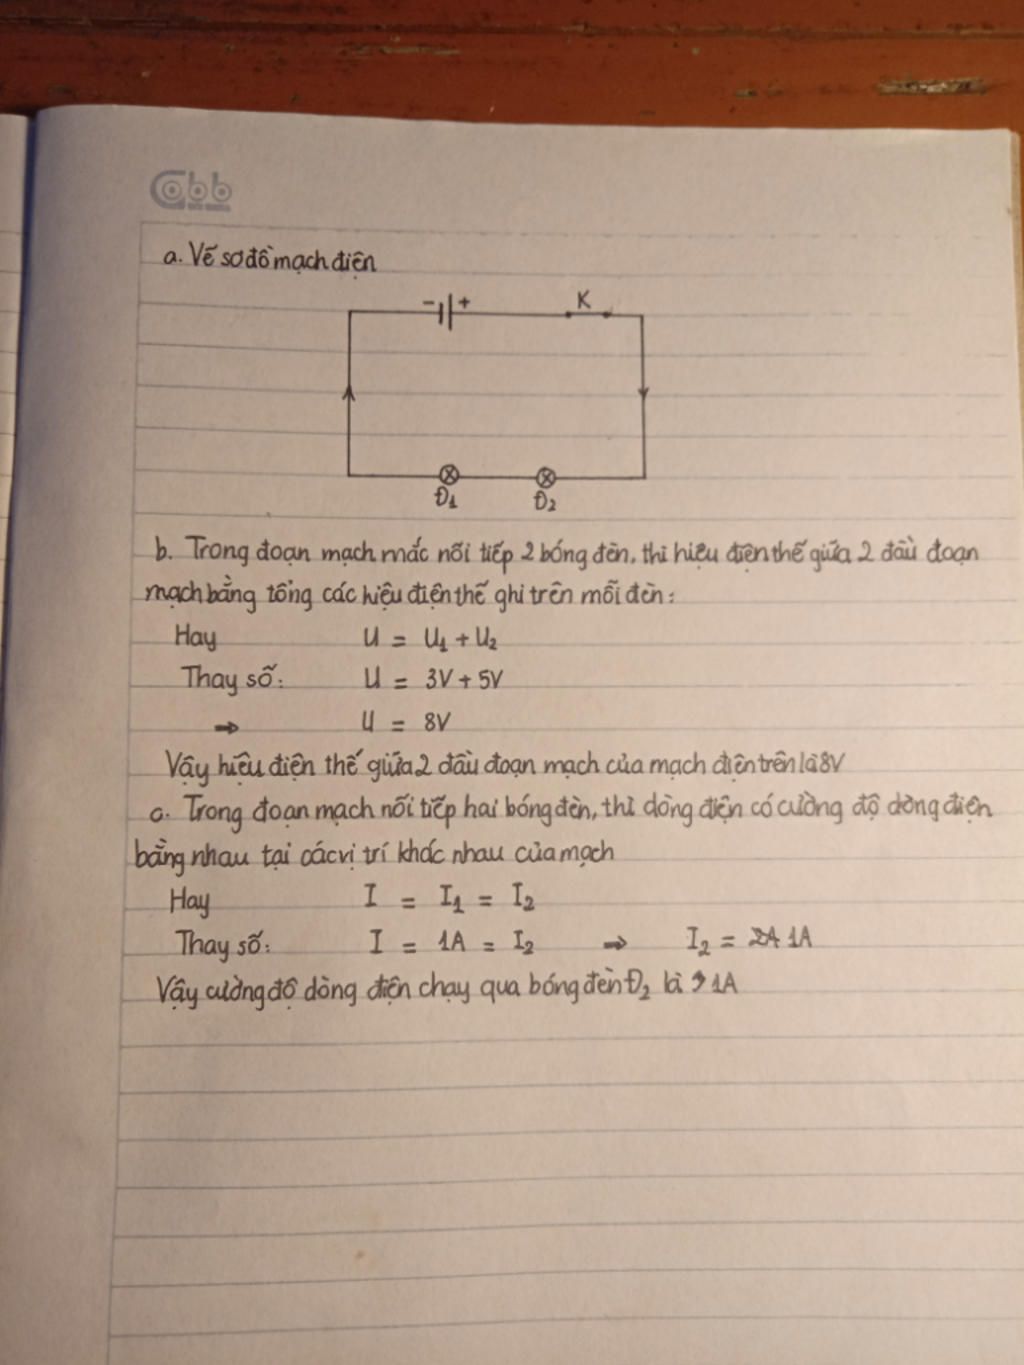 Cabb
a. Vẽ sơ đồ mạch điện
- +
K
Đ1 Đ2
b. Trong đoạn mạch mắc nối tiếp 2 bóng đèn, thì hiệu điện thế giữa 2 đầu đoạn
mạch bằng tổng các hiệu điện thế ghi trên mỗi đèn:
Hay U = U1 + U2
Thay số: U = 3V + 5V
⇒ U = 8V
Vậy hiệu điện thế giữa 2 đầu đoạn mạch của mạch điện trên là 8V
c. Trong đoạn mạch nối tiếp hai bóng đèn, thì dòng điện có cường độ dòng điện
bằng nhau tại các vị trí khác nhau của mạch
Hay I = I1 = I2
Thay số: I = 1A = I2 ⇒ I2 = 1A
Vậy cường độ dòng điện chạy qua bóng đèn Đ2 là 1A